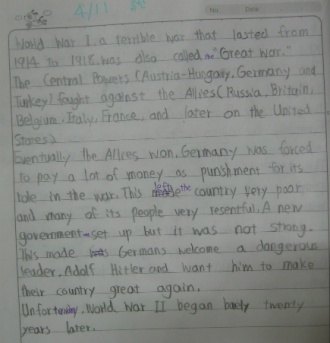 4/11
No. Date
World War I. a terrible war that lasted from
1914 to 1918. was also called the "Great war."
The Central Powers (Austria-Hungary, Germany and
Turkey) fought against the Allces (Russia, Britain,
Belgium, Italy, France, and later on the United
States)
Eventually the Allces won. Germany was forced
to pay a lot of money as punishment for its
role in the war. This left the country very poor
and many of its people very resentful. A new
government set up but it was not strong.
This made Germans welcome a dangerous
leader. Adolf Hitler and want him to make
their country great again.
World War II began barely twenty
years later.